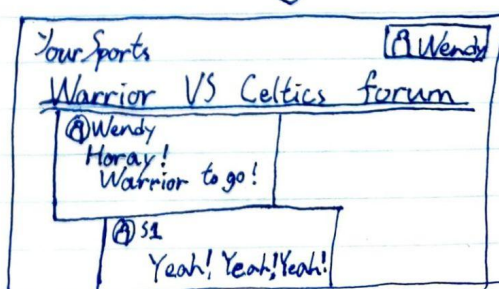 Your Sports
Wendy
Warrior VS Celtics forum
Wendy
Horay!
Warrior to go!
S1
Yeah! Yeah! Yeah!